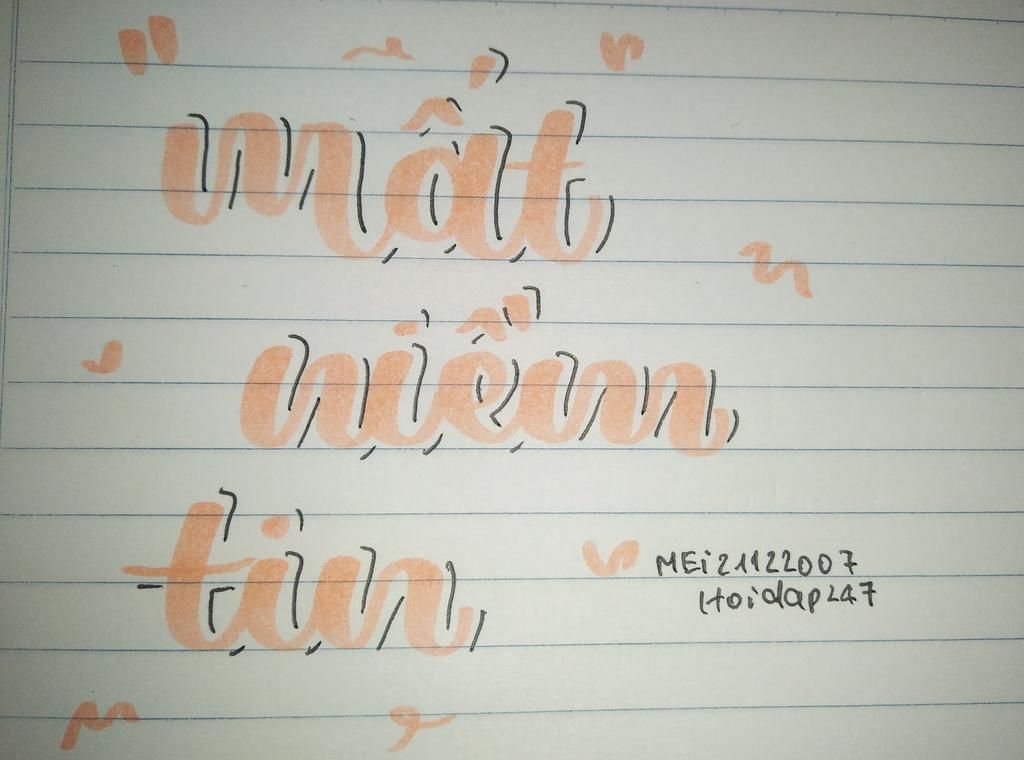 mất
niềm
tin
MEi21122007
Hoidap247